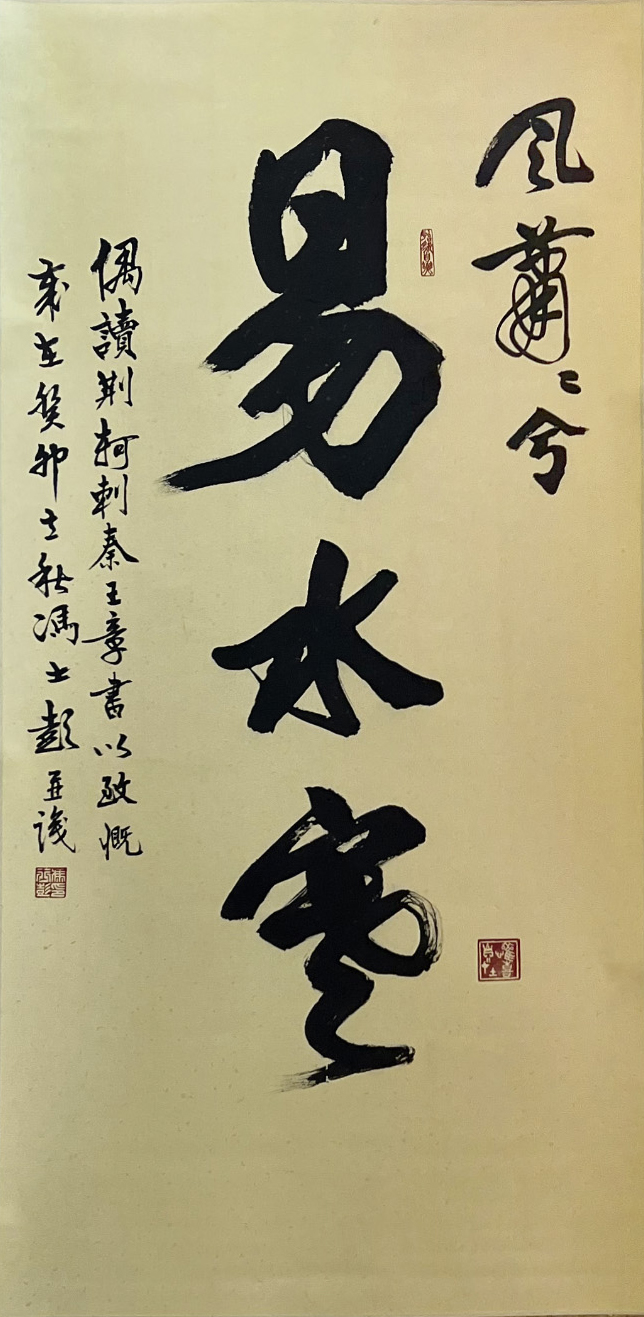 风萧〻兮
易水寒
偶讀荆軻刺秦王章書以致慨
歲在癸卯立秋馮士彭並識